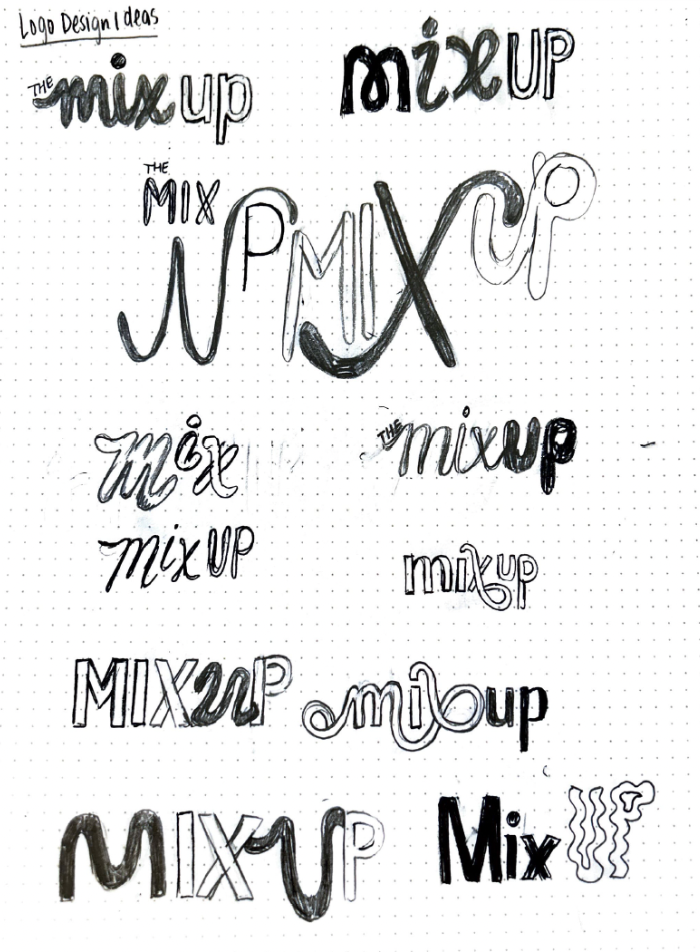 Logo Design Ideas
THE mix up
mixUP
THE
MIX
UP
MIXUP
mix
THE mixup
mix UP
mixup
MIXUP
mixup
MIXUP
Mix UP